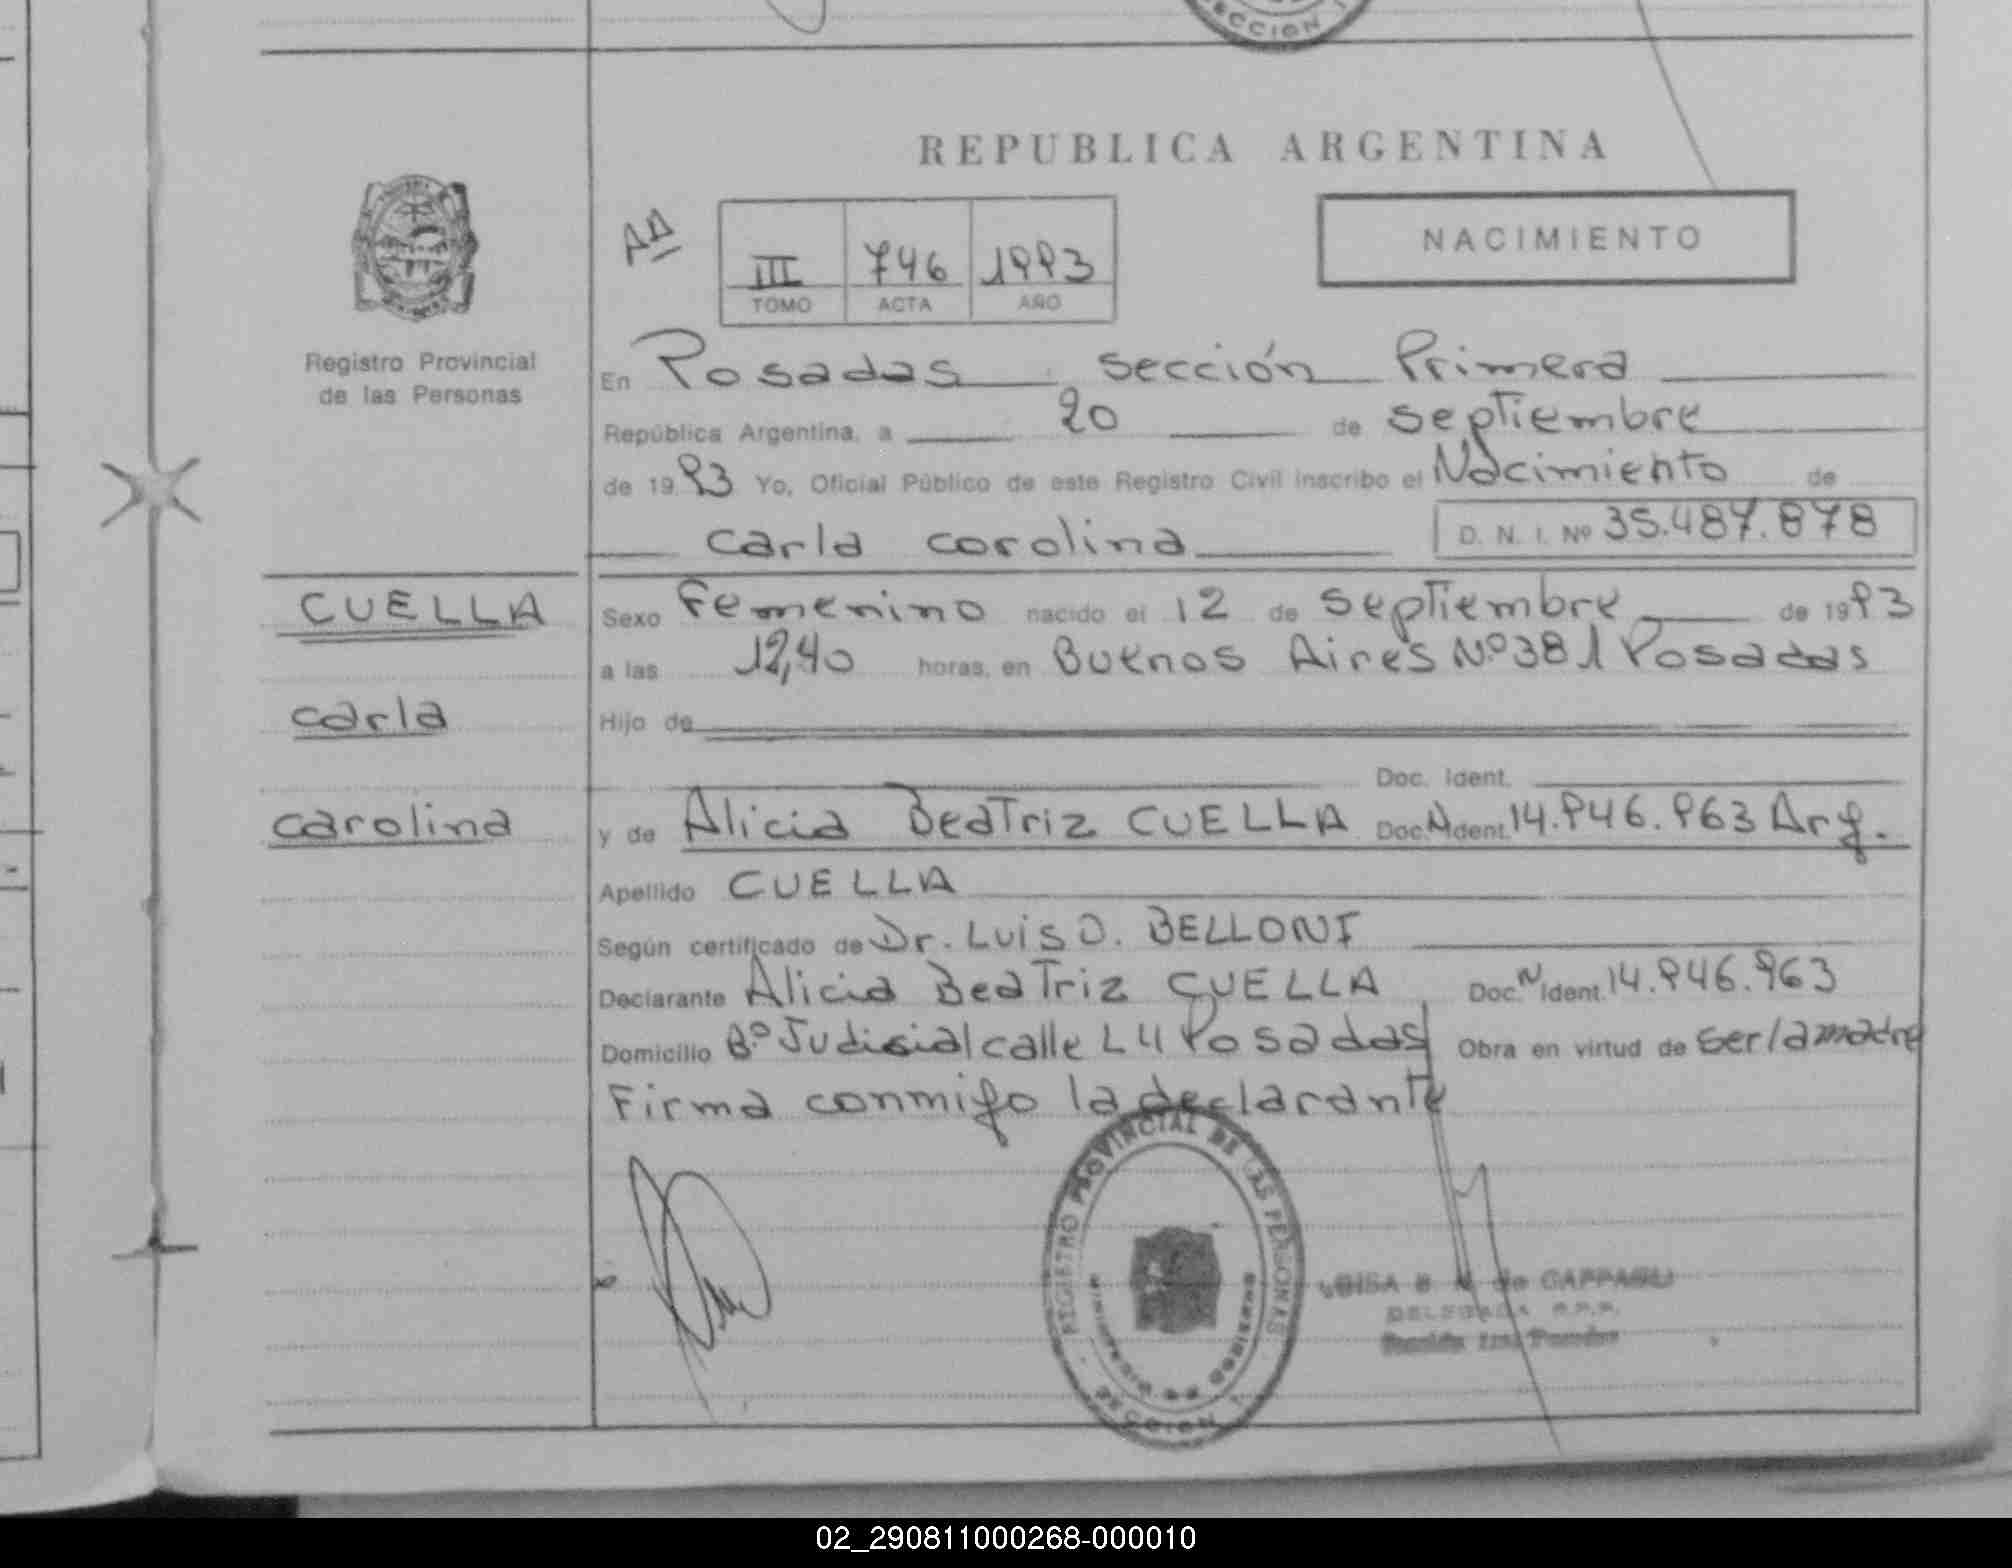 SECCION 1
REPUBLICA ARGENTINA
NACIMIENTO
AA
III 746 1993
TOMO ACTA AÑO
Registro Provincial
de las Personas
En Posadas sección Primera
República Argentina, a 20 de septiembre
de 1993 Yo, Oficial Público de este Registro Civil inscribo el Nacimiento de
carla carolina D. N. I. Nº 35.487.878
CUELLA
carla
carolina
Sexo Femenino nacido el 12 de septiembre de 1993
a las 12,40 horas, en Buenos Aires Nº 381 Posadas
Hijo de
Doc. Ident.
y de Alicia Beatriz CUELLA Doc. N Ident. 14.946.963 Arg.
Apellido CUELLA
Según certificado de Dr. Luis O. BELLONI
Declarante Alicia Beatriz CUELLA Doc. N Ident. 14.946.963
Domicilio Bº Judicial calle L4 Posadas Obra en virtud de ser la madre
Firma conmigo la declarante
REGISTRO PROVINCIAL DE LAS PERSONAS
MINISTERIO DE GOBIERNO
SECCION 1
DELEGADA R.P.P.
02_290811000268-000010